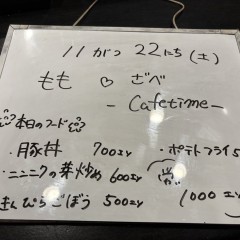 11がつ22にち(土)
もも♡ざべ
- Cafetime -
本日のフード
・豚丼 700エン ・ポテトフライ5
・ニンニクの芽炒め 600エン
きんぴらごぼう 500エン 1000エン